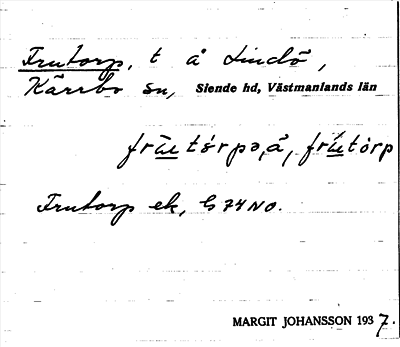 Frutorp, t å Lindö,
Kärrbo sn, Siende hd, Västmanlands län
fru̲tórpə, å, frútòrp
Frutorp ek, G 74 NO.
MARGIT JOHANSSON 1937.